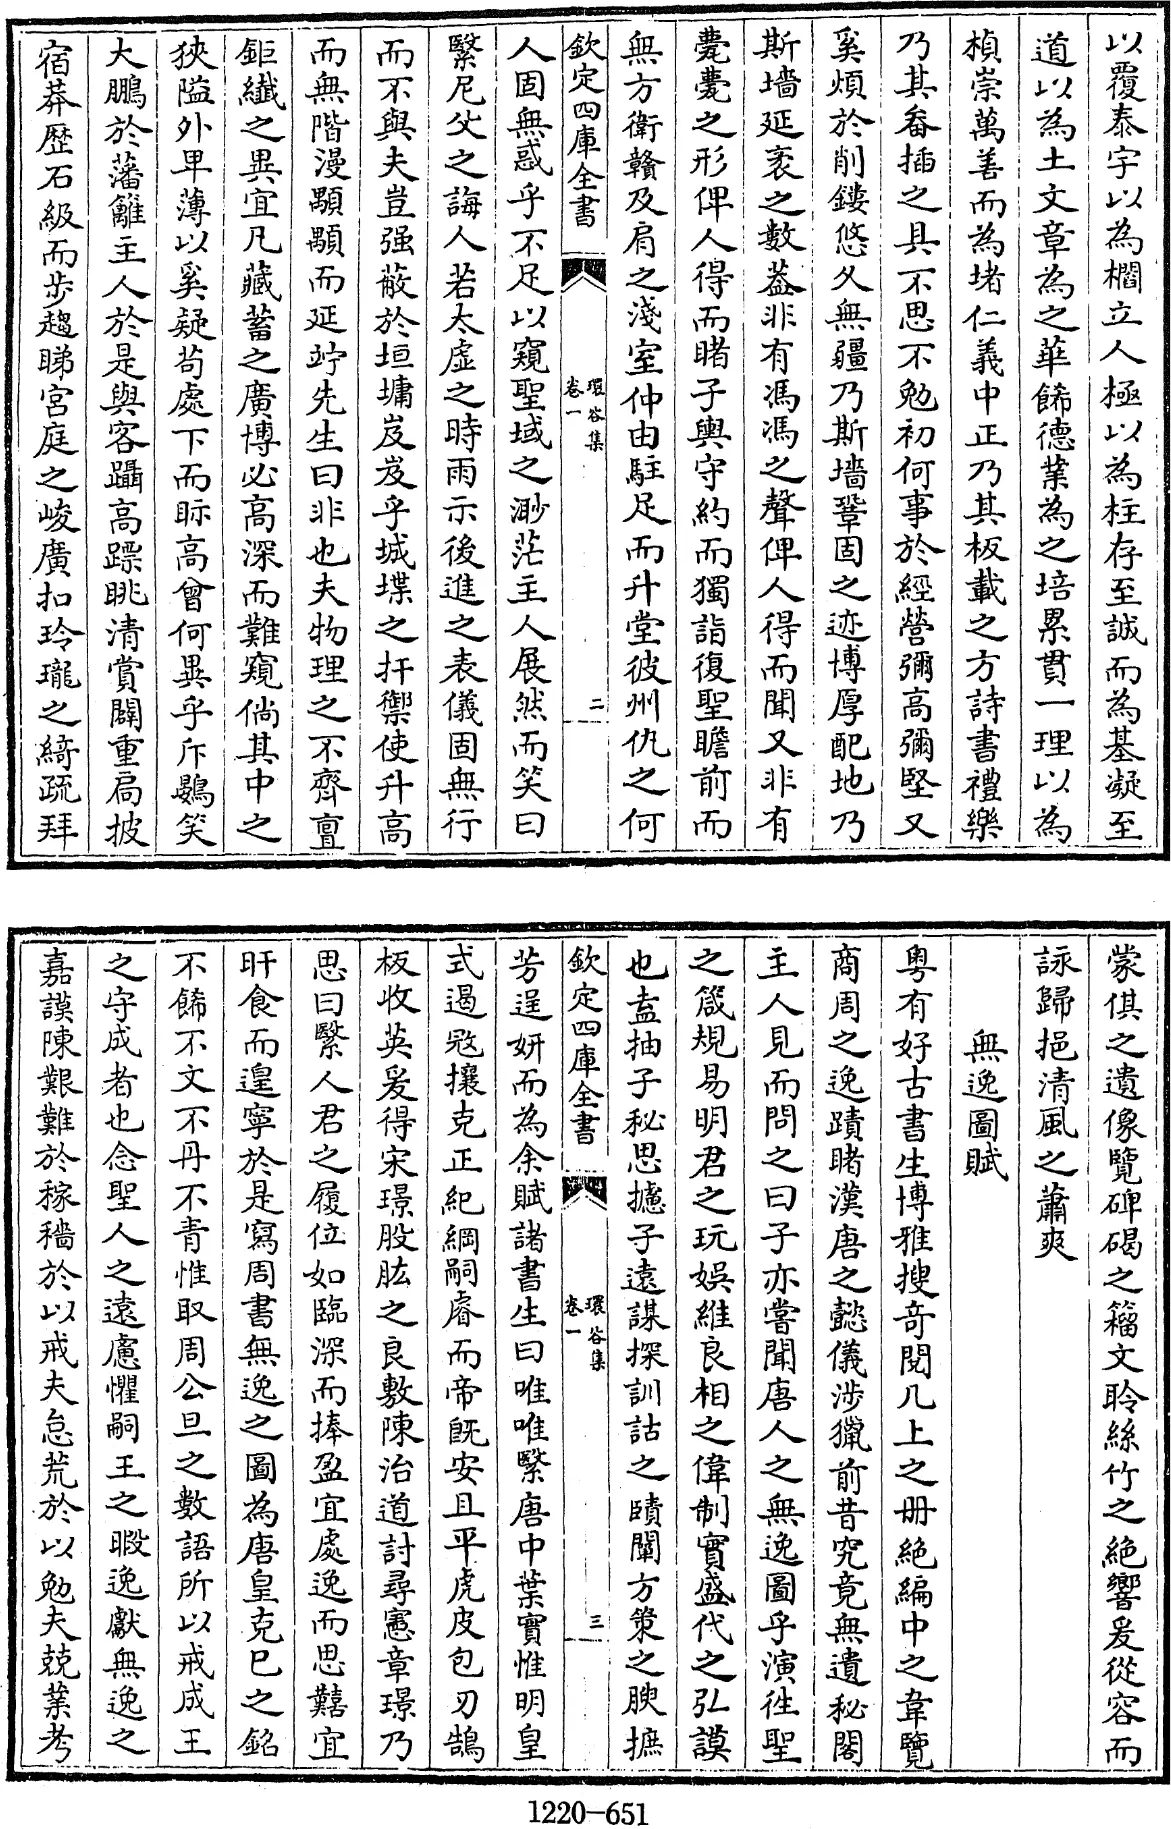 以覆泰宇以為櫩立人極以為柱存至誠而為基凝至
道以為土文章為之華餙德業為之培累貫一理以為
楨崇萬善而為堵仁義中正乃其板載之方詩書禮樂
乃其畚插之具不思不勉初何事於經營彌高彌堅又
奚煩於削鏤悠久無疆乃斯墻鞏固之迹博厚配地乃
斯墻延袤之數葢非有馮馮之聲俾人得而聞又非有
薨薨之形俾人得而睹子輿守約而獨詣復聖瞻前而
無方衛贛及肩之淺室仲由駐足而升堂彼州仇之何
欽定四庫全書 環谷集 卷一 二
人固無惑乎不足以窺聖域之渺茫主人展然而笑曰
繄尼父之誨人若太虛之時雨示後進之表儀固無行
而不與夫豈强蔽於垣墉岌岌乎城堞之扞禦使升高
而無階漫顒顒而延竚先生曰非也夫物理之不齊亶
鉅纖之異宜凡藏蓄之廣博必高深而難窺倘其中之
狹隘外卑薄以奚疑苟處下而眎高曾何異乎斥鷃笑
大鵬於藩籬主人於是與客躡高蹤眺清賞闢重扃披
宿莽歷石級而步趨睇宮庭之峻廣扣玲瓏之綺疏拜
蒙倛之遺像覽碑碣之籀文聆絲竹之絶響爰從容而
詠歸挹清風之蕭爽
無逸圖賦
粤有好古書生博雅搜奇閱几上之册絶編中之韋覽
商周之逸蹟睹漢唐之懿儀涉獵前昔究竟無遺秘閣
主人見而問之曰子亦嘗聞唐人之無逸圖乎演徃聖
之箴規易明君之玩娱維良相之偉制實盛代之弘謨
也盍抽子秘思攄子遠謀探訓詁之賾闡方策之腴摭
欽定四庫全書 環谷集 卷一 三
芳逞妍而為余賦諸書生曰唯唯繄唐中葉實惟明皇
式遏寇攘克正紀綱嗣睿而帝既安且平虎皮包刃鵠
板收英爰得宋璟股肱之良敷陳治道討尋憲章璟乃
思曰繄人君之履位如臨深而捧盈宜處逸而思囏宜
旰食而遑寧於是寫周書無逸之圖為唐皇克已之銘
不餙不文不丹不青惟取周公旦之數語所以戒成王
之守成者也念聖人之遠慮懼嗣王之暇逸獻無逸之
嘉謨陳艱難於稼穡於以戒夫怠荒於以勉夫兢業考
1220—651